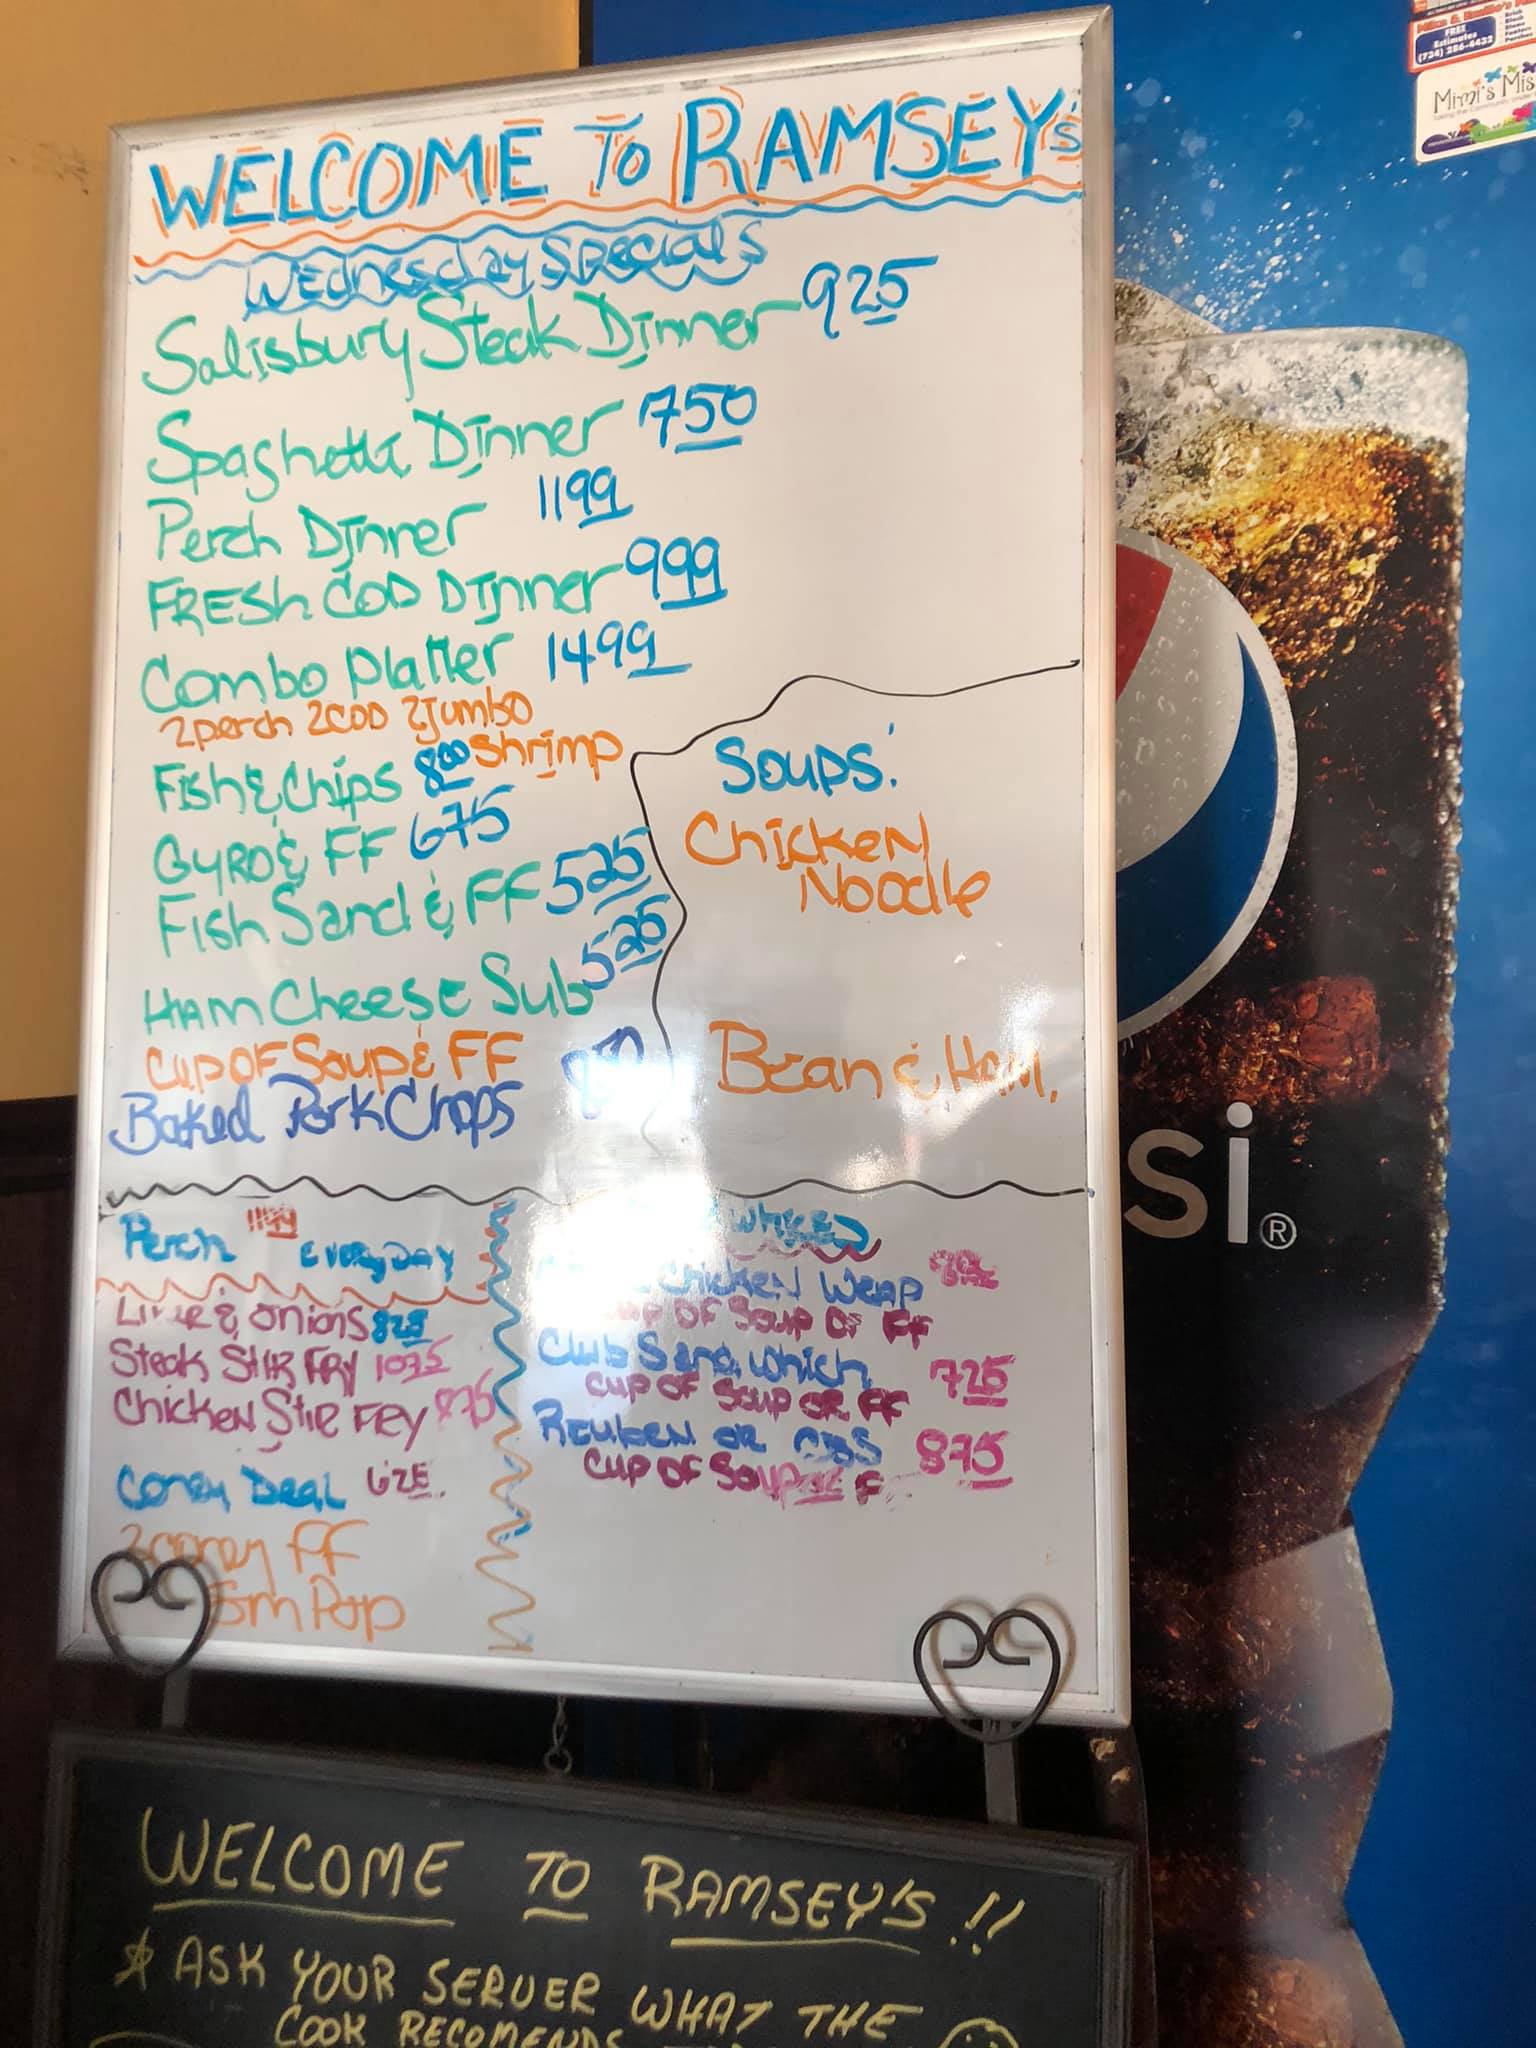 WELCOME TO RAMSEY'S
Wednesday Specials
Salisbury Steak Dinner 925
Spaghetti Dinner 750
Perch Dinner 1199
FRESH COD Dinner 999
Combo Platter 1499
2 perch 2 COD 2 Jumbo
Shrimp
Fish & Chips 800
Gyro & FF 675
Fish Sand & FF 525
HAM Cheese Sub 525
Cup OF Soup & FF
Baked Pork Chops
SOUPS:
Chicken
Noodle
Bean & Ham.
Perch 1199
EveryDay
Liver & Onions 825
Steak Stir Fry 1075
Chicken Stir Fry 875
Coney Deal
2 coney FF
Sm Pop
Chicken Wrap
CUP OF SOUP OF FF
Club Sandwhich 725
CUP OF SOUP OR FF
Reuben OR 875
CUP OF SOUP OR F
WELCOME TO RAMSEY'S !!
ASK YOUR SERVER WHAT THE
COOK RECOMENDS
si®
FREE
Estimates
(734) 286-4432
Mimi's Mis